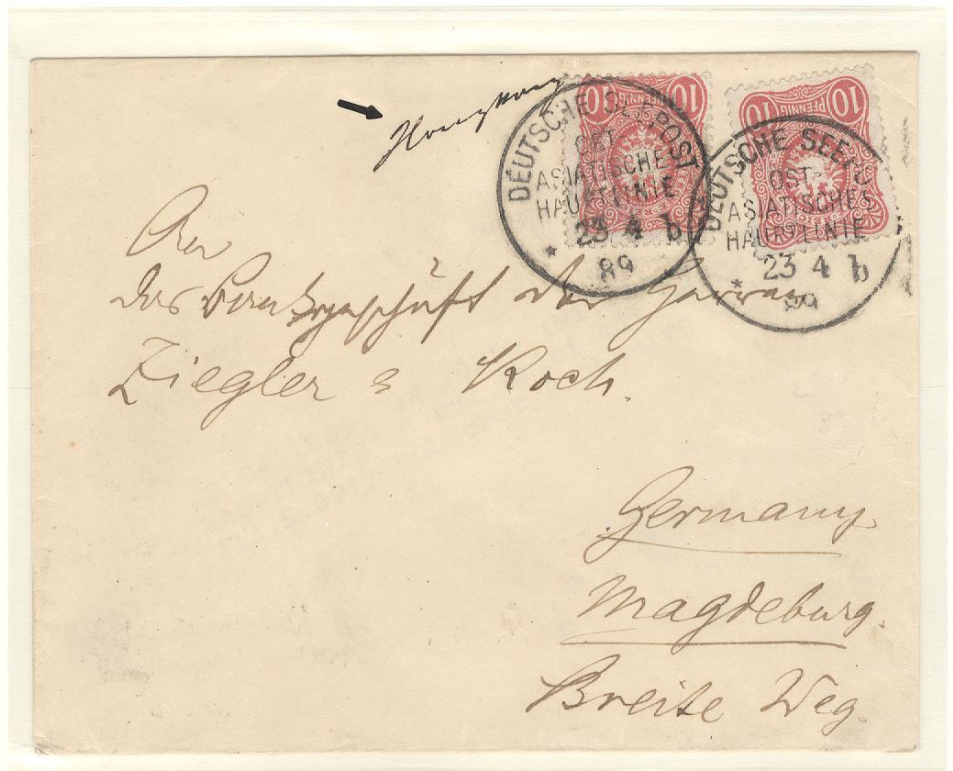 Hongkong
10 PFENNIG 10
10 PFENNIG 10
DEUTSCHE SEEPOST
OST-
ASIATISCHE
HAUPTLINIE
23 4 b
* 89
DEUTSCHE SEE
OST-
ASIATISCHE
HAUPTLINIE
23 4 b
* 89
An
das Bankgeschäft der Herren
Ziegler & Koch.
Germany.
Magdeburg.
Breite Weg.